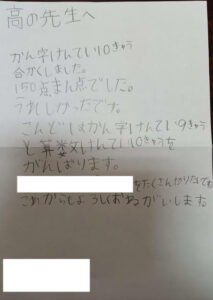 高の先生へ
かん字けんてい10きゅう
合かくしました。
150点まん点でした。
うれしかったです。
こんどはかん字けんてい9きゅう
と算数けんてい10きゅうを
がんばります。
をたくさんやりたいです
これからもよろしくおねがいします